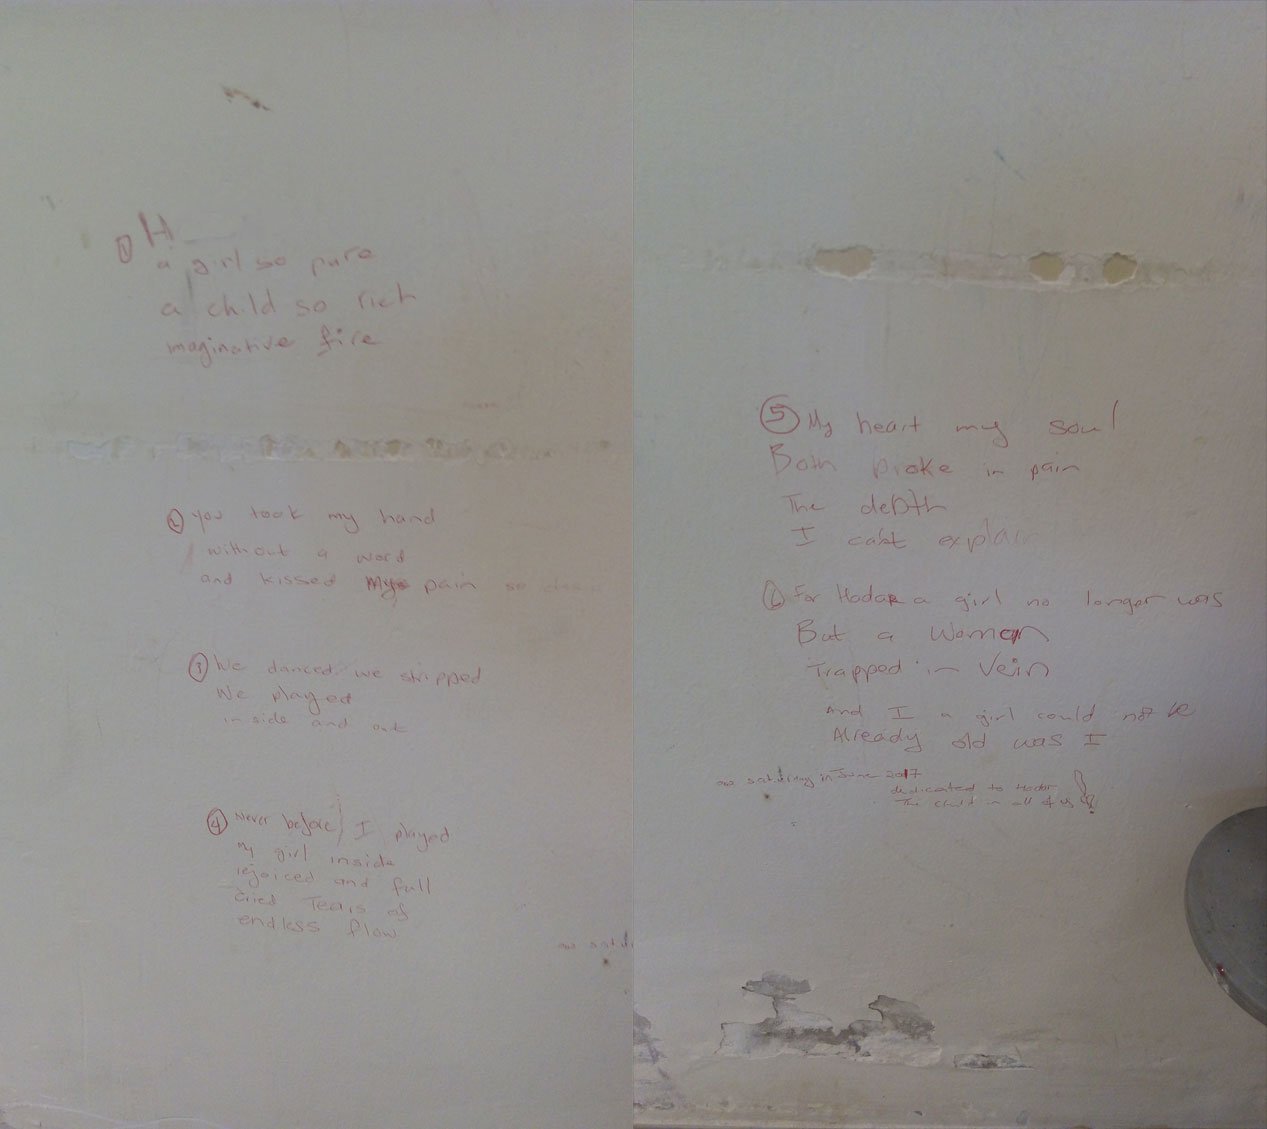 ① H
a girl so pure
a child so rich
maginative fire
② you took my hand
without a word
and kissed my pain so
③ We danced we stripped
We played
inside and out
④ Never before I played
my girl inside
rejoiced and full
cried Tears of
endless flow
⑤ My heart my soul
Both broke in pain
The depth
I cast explain
⑥ For Hadar a girl no longer was
But a woman
Trapped in Vein
And I a girl could not be
Already old was I
saturday in June 2017
dedicated to Hadar
The child in all of us